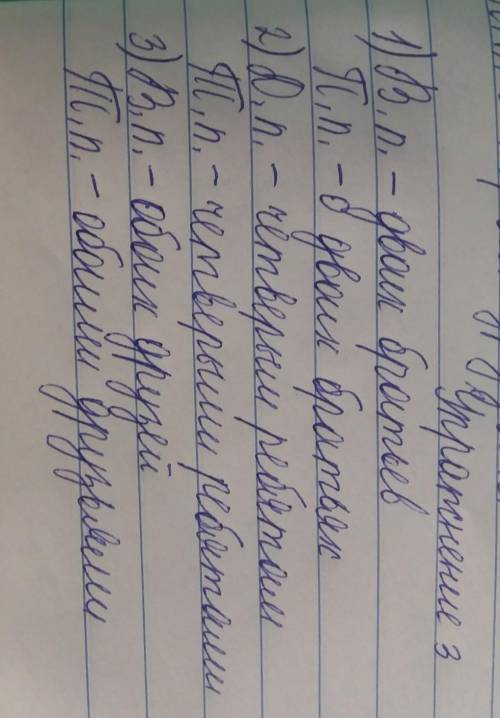 Упражнение 3
1) В.п. - двоих братьев
П.п. - о двоих братьях
2) Д.п. - четверым ребятам
Т.п. - четверыми ребятами
3) В.п. - обоих друзей
Т.п. - обоими друзьями